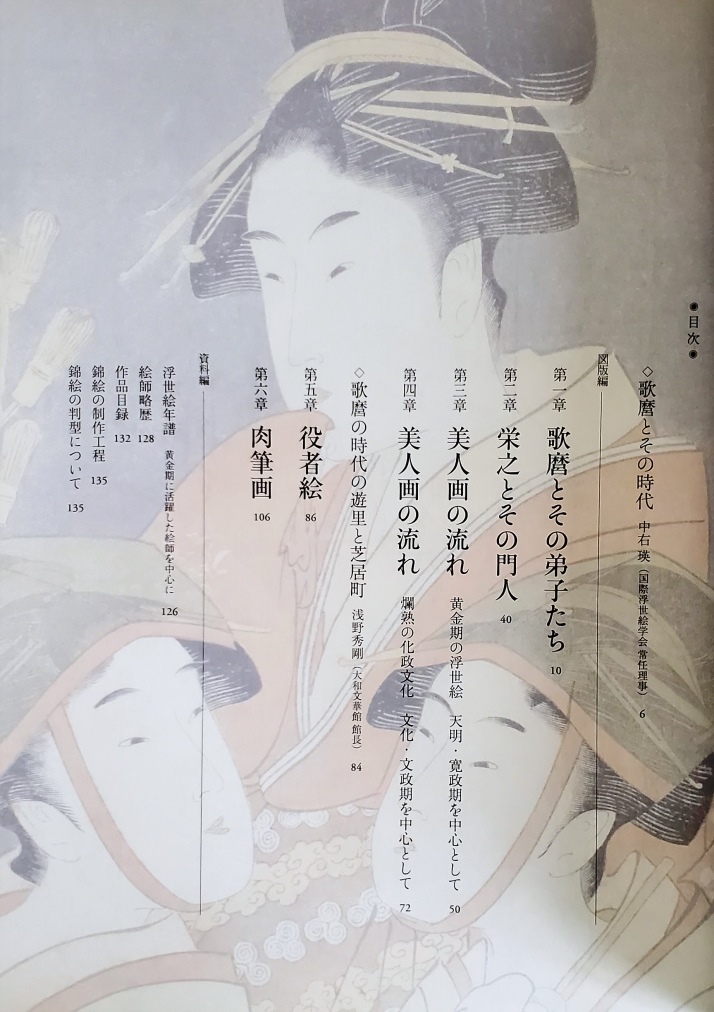 ◉目次◉
◇歌麿とその時代 中右 瑛（国際浮世絵学会 常任理事） 6
図版編
第一章 歌麿とその弟子たち 10
第二章 栄之とその門人 40
第三章 美人画の流れ 黄金期の浮世絵 天明・寛政期を中心として 50
第四章 美人画の流れ 爛熟の化政文化 文化・文政期を中心として 72
◇歌麿の時代の遊里と芝居町 浅野秀剛（大和文華館 館長） 84
第五章 役者絵 86
第六章 肉筆画 106
資料編
浮世絵年譜 黄金期に活躍した絵師を中心に 126
絵師略歴 128
作品目録 132
錦絵の制作工程 135
錦絵の判型について 135